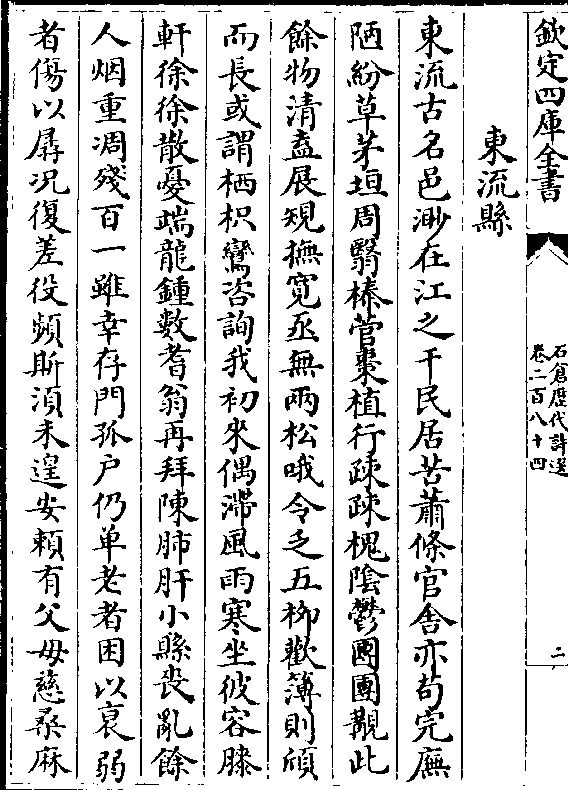 欽定四庫全書
石倉歴代詩選
卷二百八十四
二
東流縣
東流古名邑渺在江之干民居苦蕭條官舎亦茍完廡
陋紛草茅垣周翳榛菅棗植行疎疎槐陰鬱團團覩此
餘物清盍展規撫寛丞無兩松哦令乏五栁歡簿則頎
而長或謂栖枳鸞咨詢我初來偶滯風雨寒坐彼容膝
軒徐徐散憂端龍鍾數耆翁再拜陳肺肝小縣喪亂餘
人烟重凋殘百一雖幸存門孤户仍单老者困以衰弱
者傷以孱况復差役頻斯湏未遑安頼有父母慈桑麻